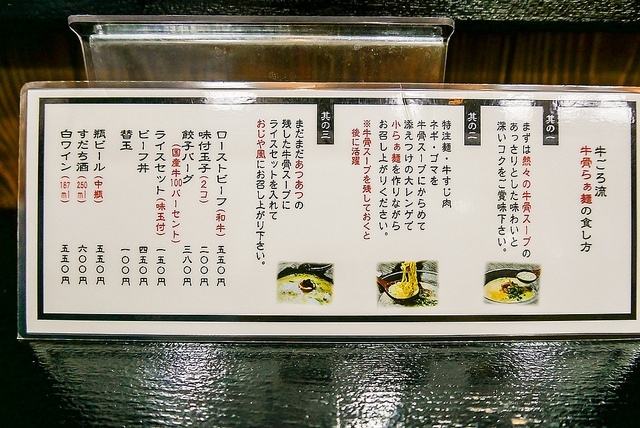 牛ごろ流
牛骨らぁ麺の食し方
其の一
まずは熱々の牛骨スープの
あっさりとした味わいと
深いコクをご賞味下さい。
其の二
特注麺・牛すじ肉
ネギ・ゴマを
牛骨スープにからめて
添えつけの大レンゲで
小らぁ麺を作りながら
お召し上がりください。
※牛骨スープを残しておくと
後に活躍
其の三
まだまだあつあつの
残した牛骨スープに
ライスセットを入れて
おじや風にお召し上がり下さい。
ローストビーフ(和牛) 五五〇円
味付玉子(2コ) 二〇〇円
餃子バーグ 三八〇円
(国産牛100パーセント)
ライスセット(味玉付) 一五〇円
ビーフ丼 四五〇円
替玉 一〇〇円
瓶ビール(中瓶) 五五〇円
すだち酒(250ml) 六〇〇円
白ワイン(187ml) 五五〇円